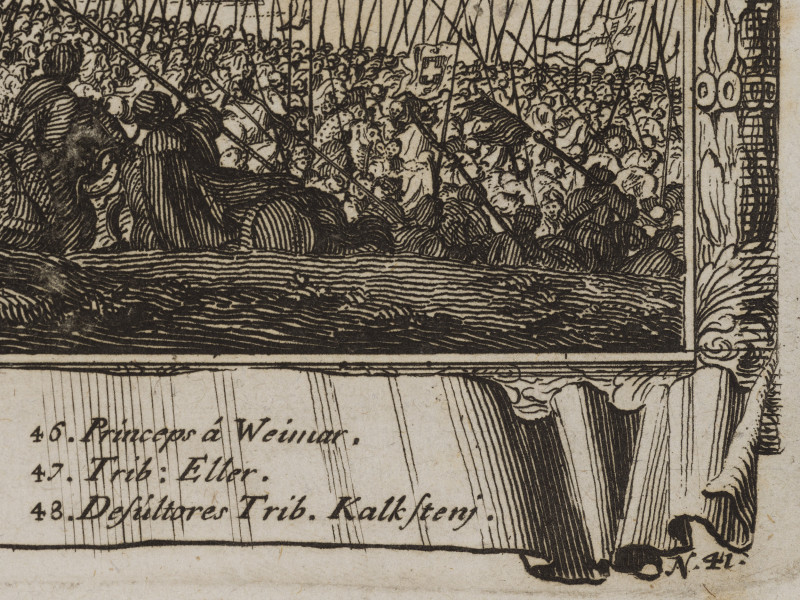 46. Princeps á Weimar.
47. Trib: Eller.
48. Desúltores Trib. Kalkſtenj.
N. 41.